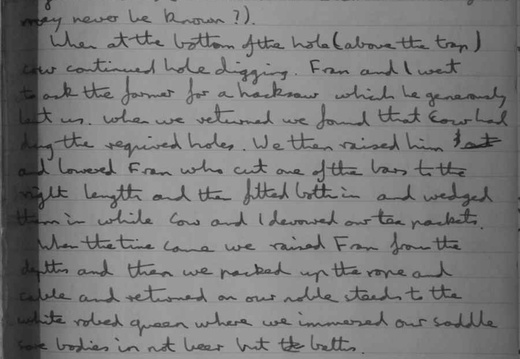 may never be known?).
When at the bottom of the hole (above the trap)
Cow continued hole digging. Fran and I went
to ask the farmer for a hacksaw which he generously
lent us. When we returned we found that Cow had
dug the required holes. We then raised him
and lowered Fran who cut one of the bars to the
right length and then fitted both in and wedged
them in while Cow and I devoured our tea packets.
When the time came we raised Fran from the
depths and then we packed up the rope and
cable and returned on our noble steeds to the
white robed queen where we immersed our saddle
sore bodies in not beer but baths.